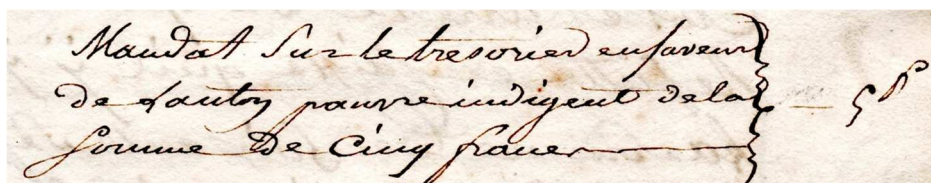 Mandat Sur le tresorier en faveur
de Lautoy pauvre indigent de la
Somme De Cinq franc — 5 f